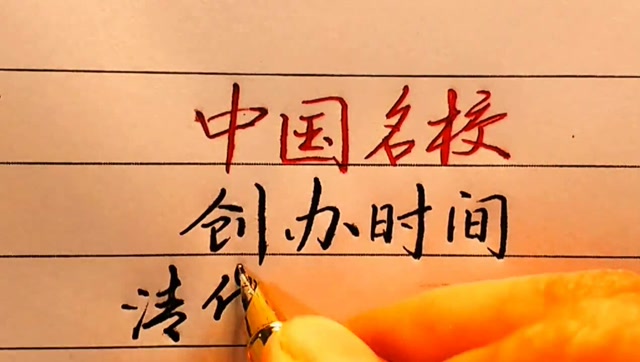 中国名校
创办时间
清代